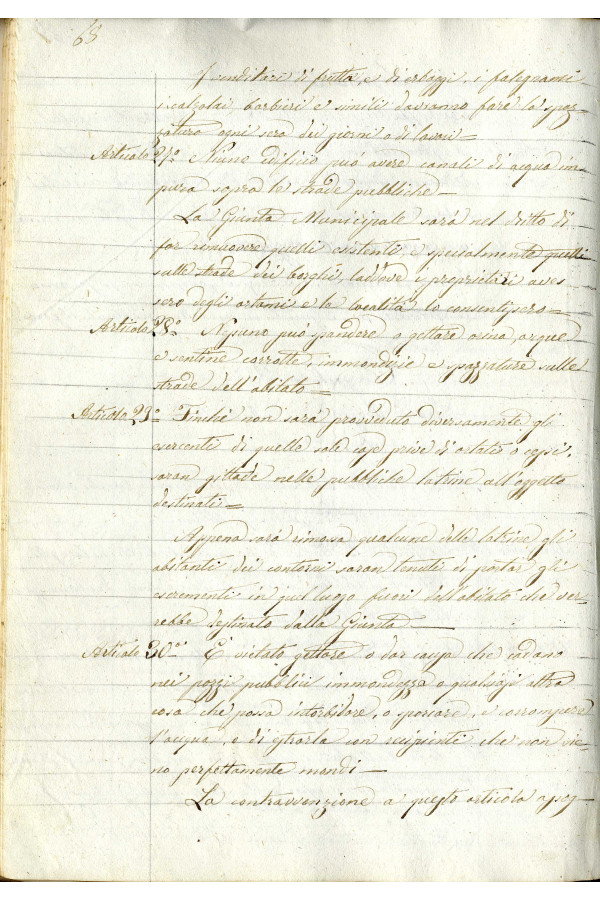 68
I venditori di frutta, e di erbaggi, i falegnami
i calzolai, barbieri e simili dovranno fare lo spaz=
zaturo ogni sera dei giorni di lavori=
Articolo 27.° Niuno edificio può avere canali di acqua im=
pura sopra le strade pubbliche=
La Giunta Municipale sarà nel dritto di
far rimuovere quelli esistenti, e specialmente quelli
sulle strade dei borghi, laddove i proprietari aves
sero degli ortami e la località lo consentissero=
Articolo 28.° Nessuno può spandere o gettare orina, acque
e sentine corrotte, immondizie e spazzature sulle
strade dell'abitato=
Articolo 29.° Finchè non sarà provveduto diversamente gli
escrementi di quelle sole case prive di cessi,
saran gittati nelle pubbliche latrine all'oggetto
destinati=
Appena sarà rimossa qualcune delle latrine gli
abitanti dei contorni saran tenuti di portar gli
escrementi in quel luogo fuori dell'abitato che ver
rebbe destinato dalla Giunta=
Articolo 30.° È vietato gettare o dar causa che cadano
nei pozzi pubblici immondezza o qualsiasi altra
cosa che possa intorbidare, o sporcare, e corrompere
l'acqua, o di estrarla con recipienti che non sie
no perfettamente mondi=
La contravvenzione a questo articolo assog=